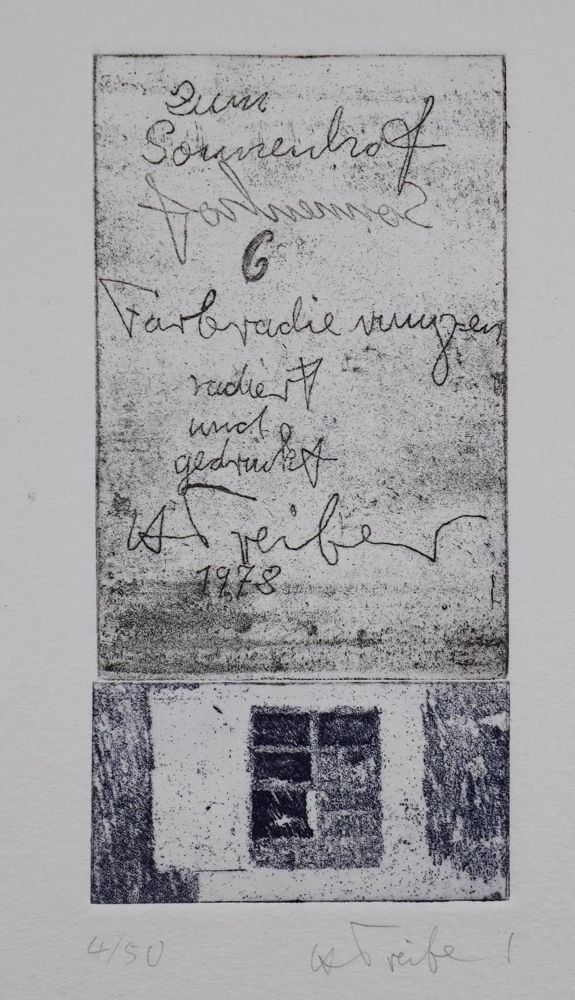 Zum
Sonnenhof
Sonnenhof
6
Farbradierungen
radiert
und
gedruckt
H Treiber
1978
4/50 H Treiber